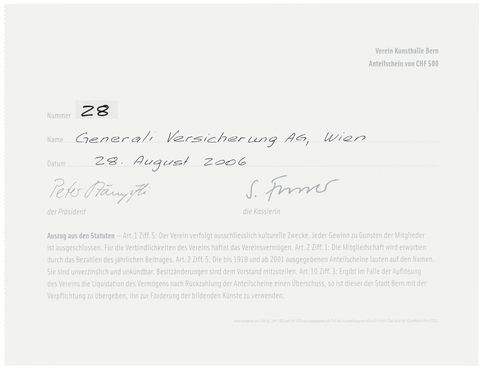 Verein Kunsthalle Bern
Anteilschein von CHF 500
Nummer 28
Name Generali Versicherung AG, Wien
Datum 28. August 2006
der Präsident die Kassierin
Auszug aus den Statuten – Art. 1 Ziff. 5: Der Verein verfolgt ausschliesslich kulturelle Zwecke. Jeder Gewinn zu Gunsten der Mitglieder
ist ausgeschlossen. Für die Verbindlichkeiten des Vereins haftet das Vereinsvermögen. Art. 2 Ziff. 1: Die Mitgliedschaft wird erworben
durch das Bezahlen des jährlichen Beitrages. Art. 2 Ziff. 5: Die bis 1918 und ab 2001 ausgegebenen Anteilscheine lauten auf den Namen.
Sie sind unverzinslich und unkündbar. Besitzänderungen sind dem Vorstand mitzuteilen. Art. 10 Ziff. 3: Ergibt im Falle der Auflösung
des Vereins die Liquidation des Vermögens nach Rückzahlung der Anteilscheine einen Überschuss, so ist dieser der Stadt Bern mit der
Verpflichtung zu übergeben, ihn zur Förderung der bildenden Künste zu verwenden.